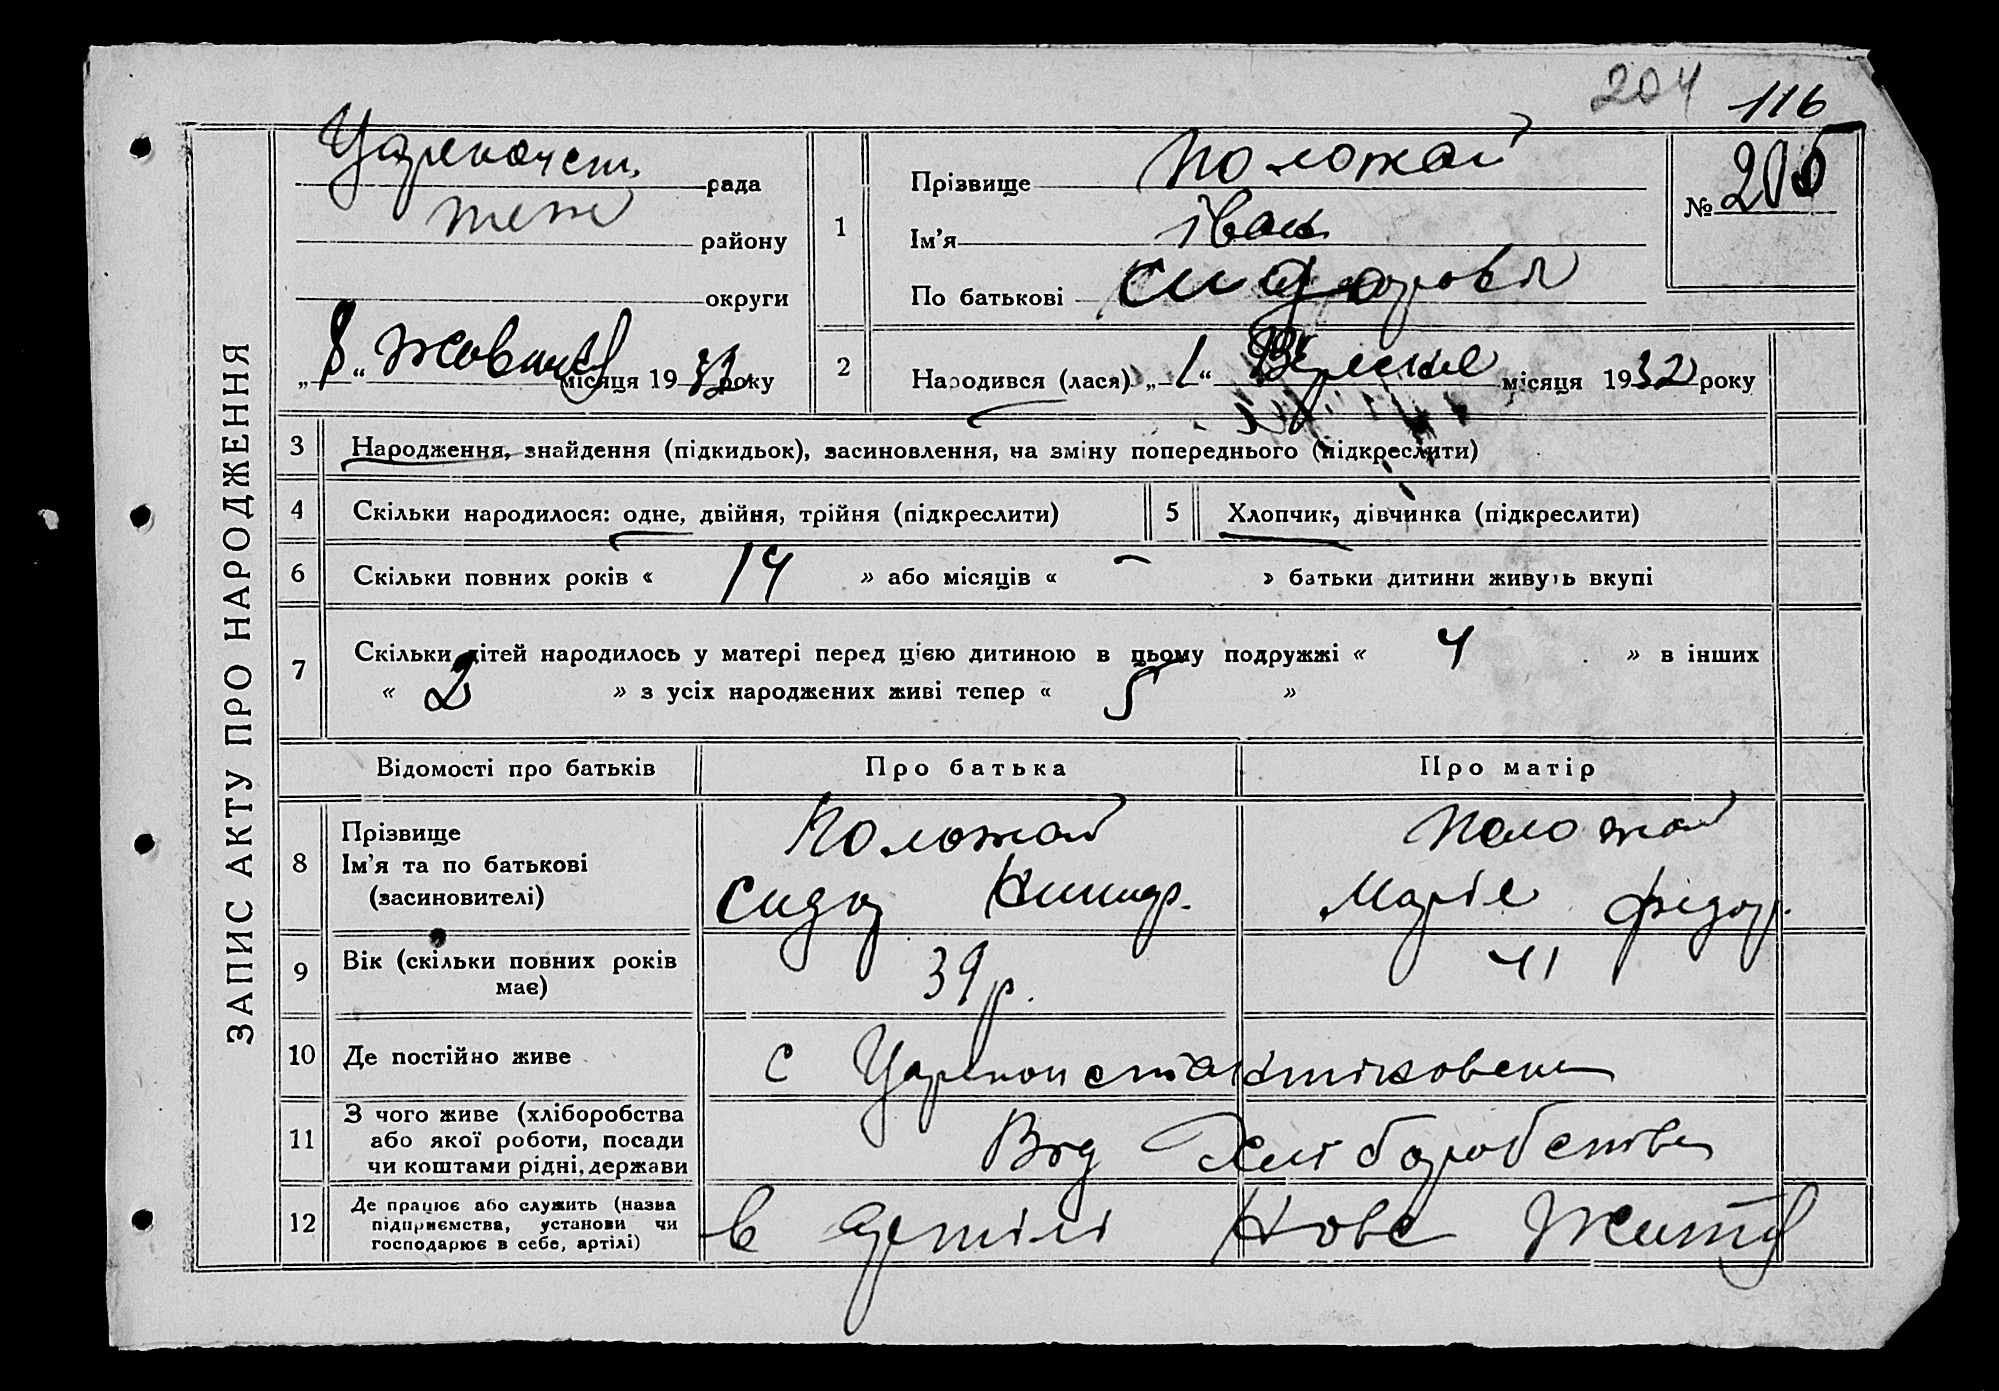 204 116
ЗАПИС АКТУ ПРО НАРОДЖЕННЯ
Царекочет. рада
теж району
округи
„8“ Жовтня місяця 1932 року
1
Прізвище Положай
Ім'я Іван
По батькові Сидоров.
№ 205
2
Народився (лася) „1“ Вересня місяця 1932 року
3 Народження, знайдення (підкидьок), засиновлення, на зміну попереднього (підкреслити)
4 Скільки народилося: одне, двійня, трійня (підкреслити) 5 Хлопчик, дівчинка (підкреслити)
6 Скільки повних років « 14 » або місяців « – » батьки дитини живуть вкупі
7 Скільки дітей народилось у матері перед цією дитиною в цьому подружжі « 4 » в інших
« 2 » з усіх народжених живі тепер « 5 »
Відомості про батьків Про батька Про матір
8 Прізвище Положай Положай
Ім'я та по батькові Сидор Марія Федор.
(засиновителі)
9 Вік (скільки повних років має) 39 р. 41
10 Де постійно живе с Цареконстантіновки
11 З чого живе (хліборобства або якої роботи, посади чи коштами рідні, держави Від Хліборобства
12 Де працює або служить (назва підприємства, установи чи господарює в себе, артілі) в артілі Нове Життя